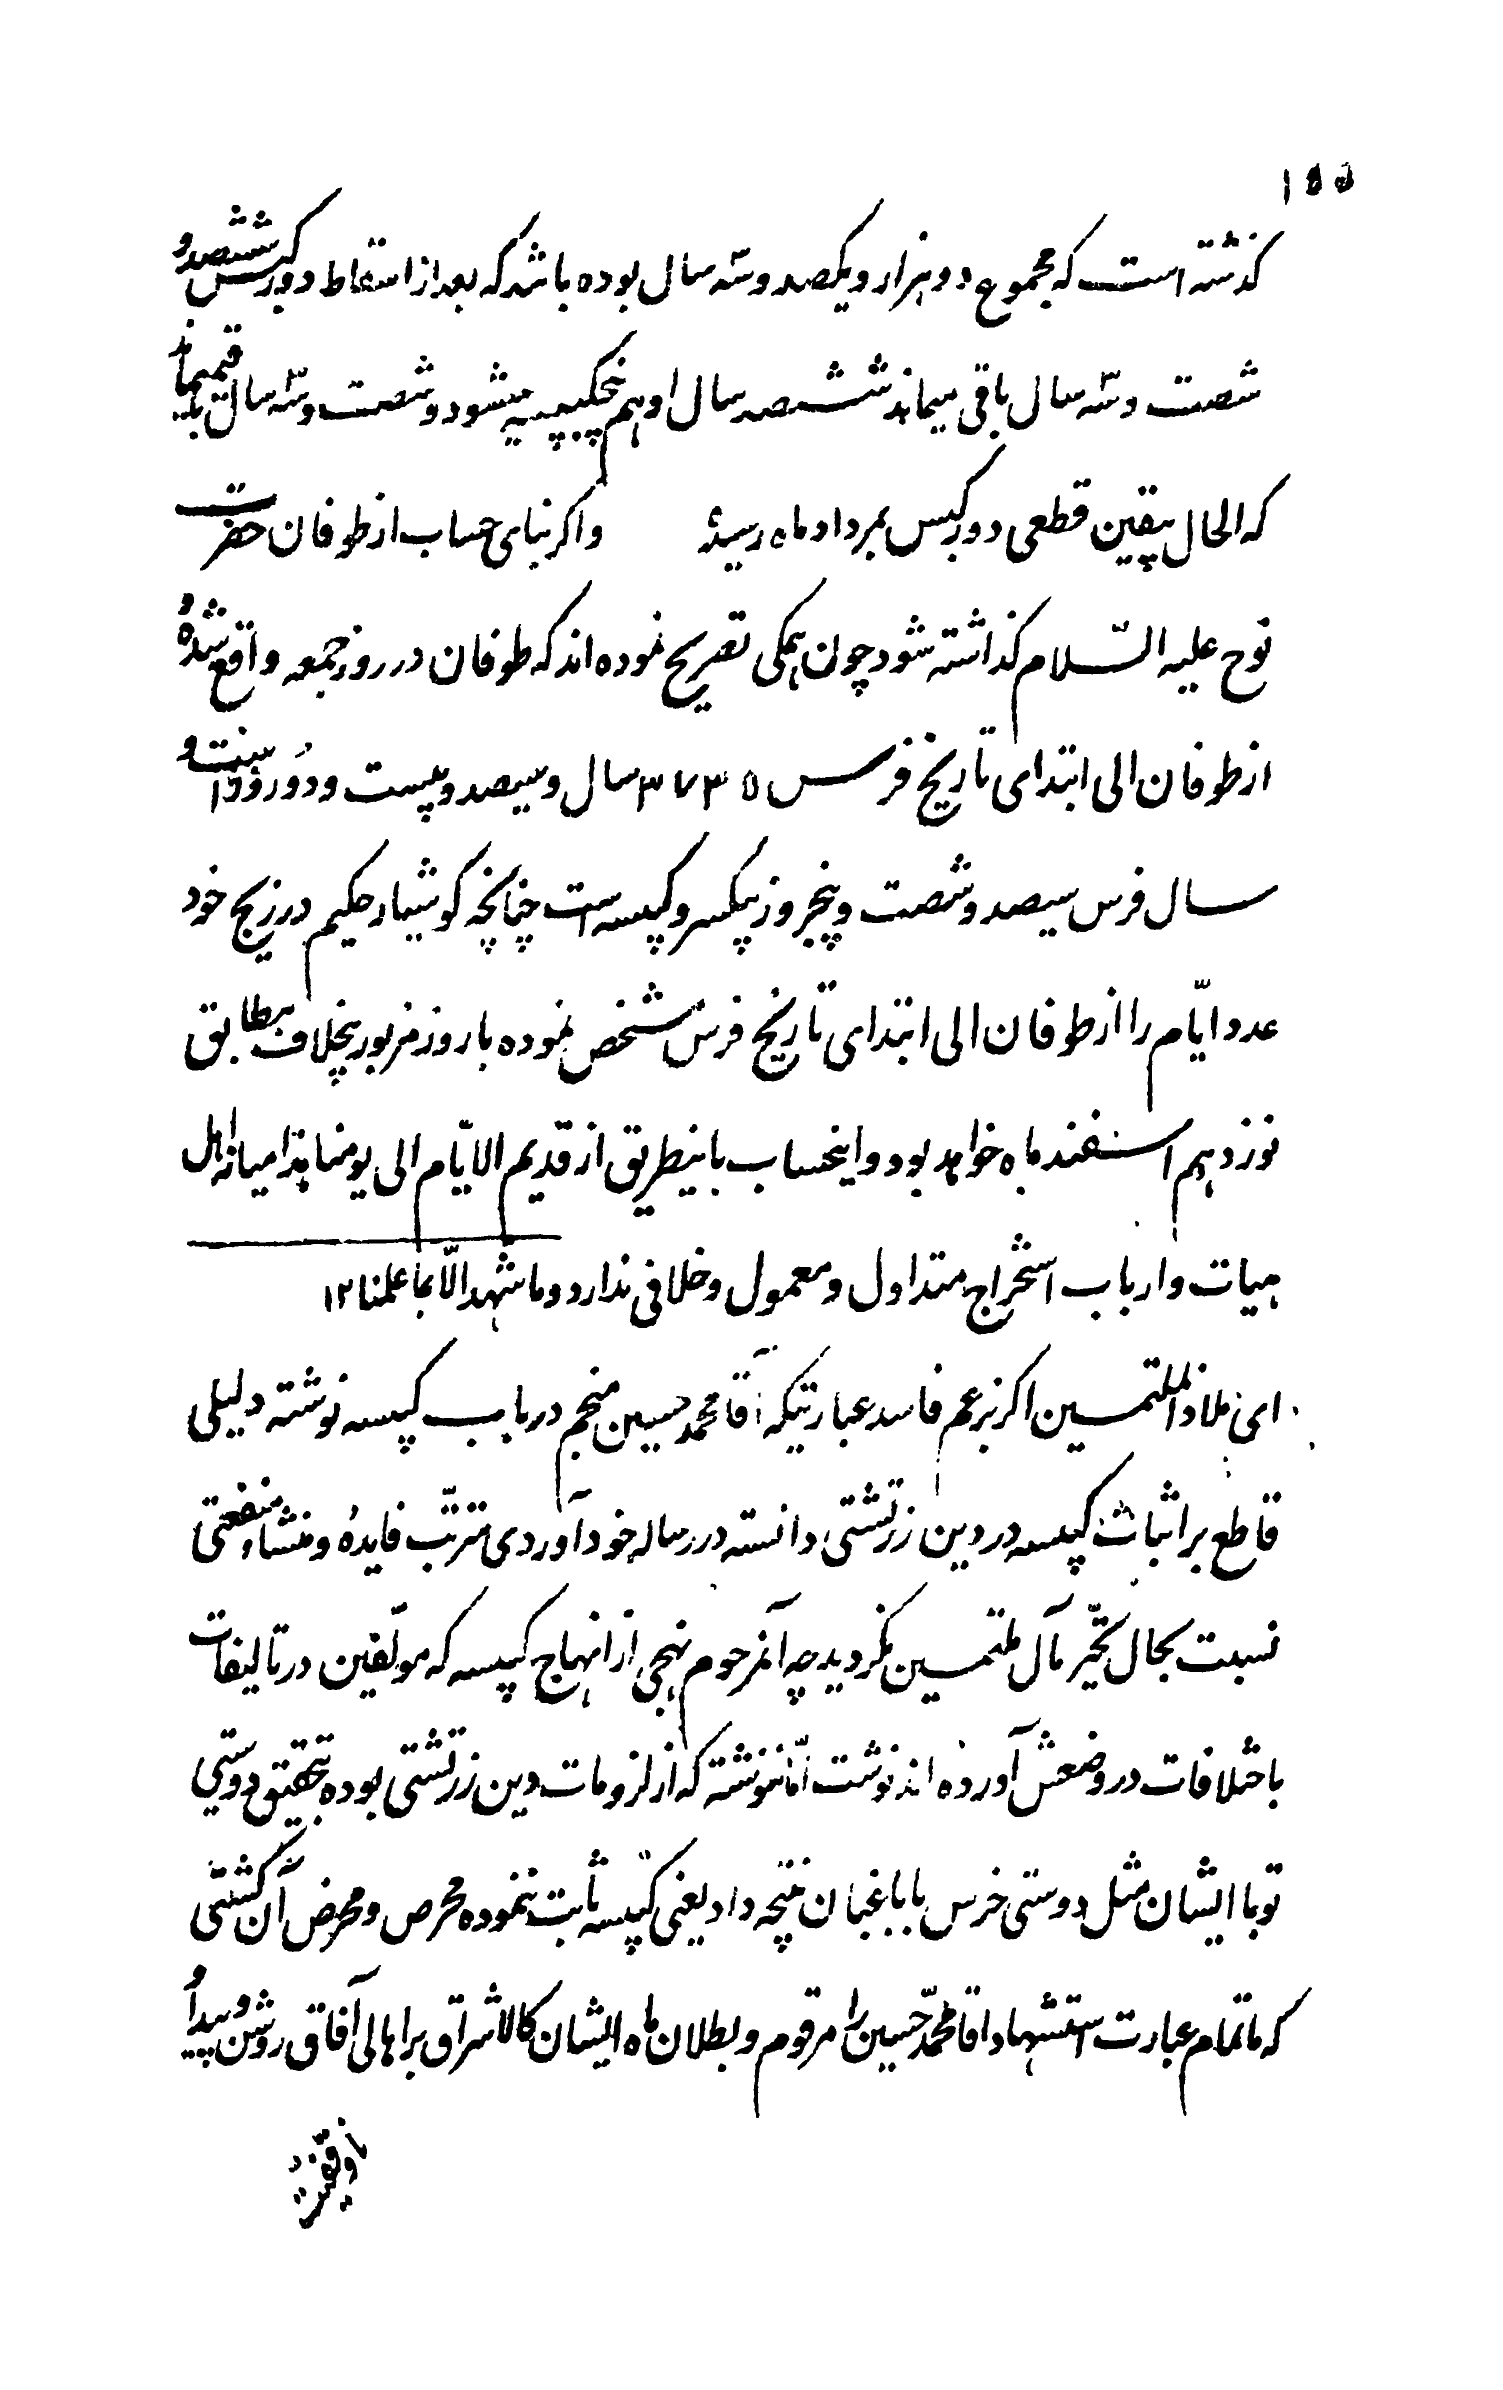 ۱۵۵
کذشته است که مجموع دو هزار و یکصد و سه سال بوده باشد که بعد از اسقاط دور کبس ششصد و
شصت و سه سال باقی میماند ششصد سال او هم پنج کبیسه میشود و شصت و سه سال باقی میماند
که الحال بیقین قطعی دور کبس بمرداد ماه رسیده واکر بنای حساب از طوفان حضرت
نوح علیه السّلام کذاشته شود چون همکی تصریح نموده اند که طوفان در روز جمعه واقع شده و
از طوفان الی ابتدای تاریخ فرس ۳۷۳۵ سال و سیصد و بیست و دو روز است و
سال فرس سیصد و شصت و پنجروز بیکسر و کبیسه است چنانچه کوشیار حکیم در زیج خود
عدد ایّام را از طوفان الی ابتدای تاریخ فرس مشخص نموده با روز مزبور بیخلاف مطابق
نوزدهم اسفند ماه خواهد بود و اینحساب باینطریق از قدیم الایّام الی یومنا هذا میانه اهل
هیات و ارباب استخراج متداول و معمول و خلافی ندارد و ما شهد الّا بما علمنا ۱۲
ای ملاذ الملتمسین اکر بزعم فاسد عبارتیکه آقا محمد حسین منجم در باب کبیسه نوشته دلیلی
قاطع بر اثبات کبیسه در دین زرتشتی دانسته در رساله خود آوردی مترتّب فایده و منشاء منفعتی
نسبت بحال تحیّر مآل ملتمسین نکردید چه آنمرحوم نهجی از انهاج کبیسه که مولّفین در تالیفات
باختلافات در وضعش آورده اند نوشت امّا ننوشته که از لزومات دین زرتشتی بوده بتحقیق دوستی
تو با ایشان مثل دوستی خرس با باغبان نتیجه داد یعنی کبیسه ثابت ننموده محرص و محرض آن کشتی
که ما تمام عبارت استشهاد اقا محمّد حسین را مرقوم و بطلان ماه ایشان کالاشراق بر اهالی آفاق روشن و پیدا و